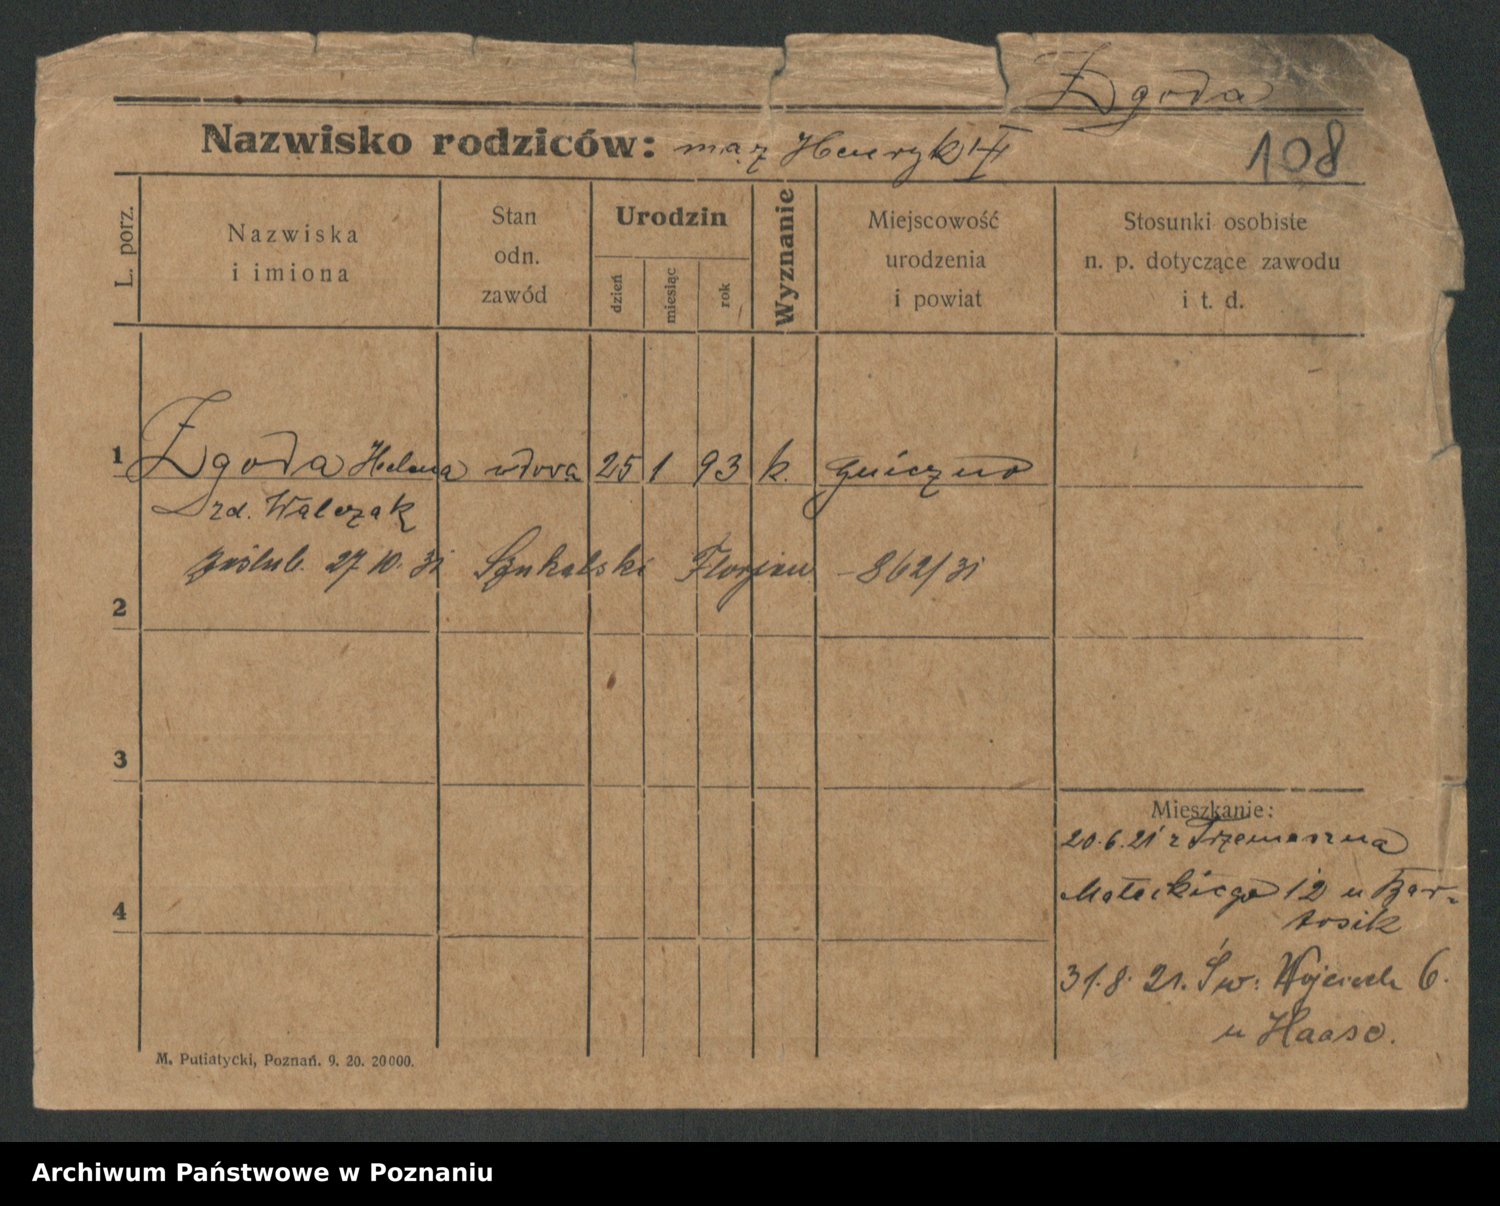 Zgoda
Nazwisko rodziców: mąż Henryk
108
L. porz.
Nazwiska
i imiona
Stan
odn.
zawód
Urodzin
dzień
miesiąc
rok
Wyznanie
Miejscowość
urodzenia
i powiat
Stosunki osobiste
n. p. dotyczące zawodu
i t. d.
1 Zgoda Helena wdowa 25 1 93 k. Gniezno
zd. Walczak
zaślub. 27 10. 31 Szukalski Florjan – 862/31
2
3
Mieszkanie:
20.6.21 z Trzemeszna
Małeckiego 12 u Bar-
tosik
4
31.8. 21. Św. Wojciech 6.
u Haase.
M. Putiatycki, Poznań. 9. 20. 20000.
Archiwum Państwowe w Poznaniu